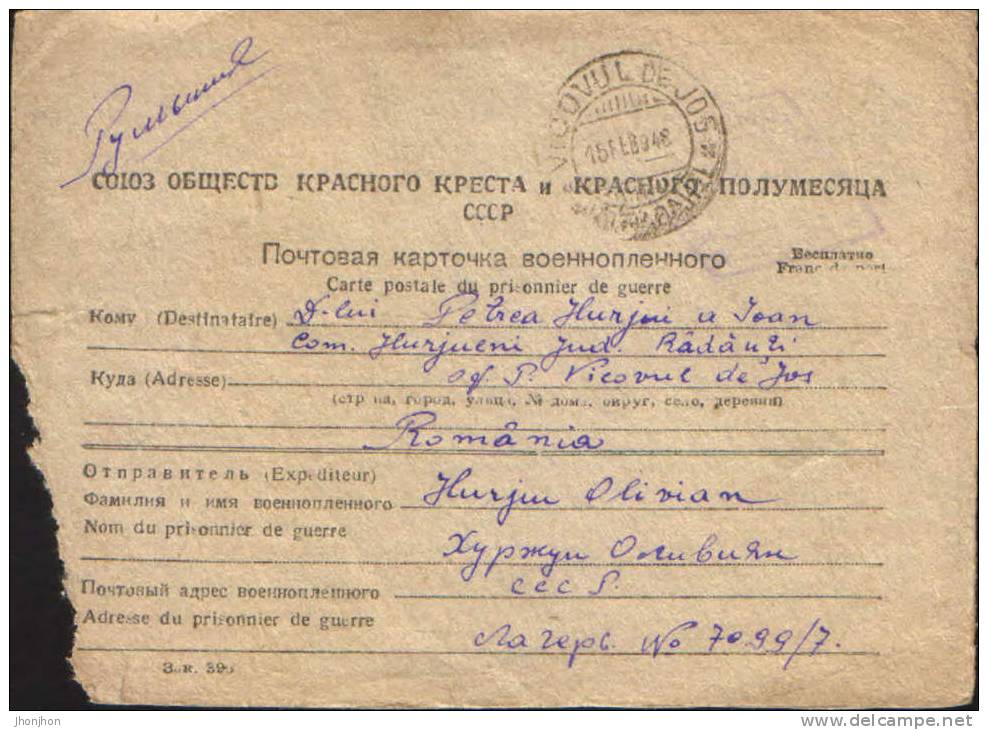 Румыния
VICOVUL DE JOS
15 FEB 948
СОЮЗ ОБЩЕСТВ КРАСНОГО КРЕСТА и КРАСНОГО ПОЛУМЕСЯЦА
СССР
Почтовая карточка военнопленного
Бесплатно
Franc de port
Carte postale du prisonnier de guerre
Кому (Destinataire) D-lui Petrea Hurjui a Ioan
Com. Hurjueni Jud. Rădăuți
Куда (Adresse) of P. Vicovul de Jos
(страна, город, улица, № дома, округ, село, деревня)
România
Отправитель (Expéditeur)
Фамилия и имя военнопленного Hurjui Olivian
Nom du prisonnier de guerre
Хуржуи Оливиян
Почтовый адрес военнопленного СССР.
Adresse du prisonnier de guerre
Лагерь No 7099/7.
Зак. 395
jhonjhon
www.delcampe.net